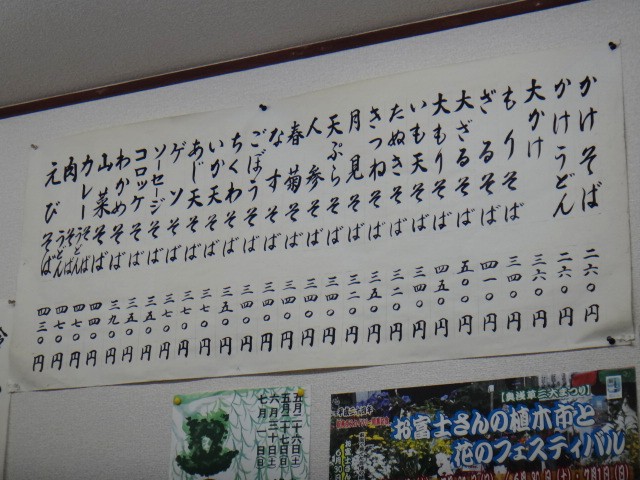 かけそば 二六〇円
かけうどん 二六〇円
大かけ 三六〇円
もりそば 三四〇円
ざるそば 四一〇円
大ざるそば 五〇〇円
大もりそば 四五〇円
いも天そば 三四〇円
たぬきそば 三二〇円
きつねそば 三五〇円
月見そば 三二〇円
天ぷらそば 三四〇円
人参そば 三四〇円
春菊そば 三四〇円
なすそば 三四〇円
ごぼうそば 三四〇円
ちくわそば 三四〇円
いか天そば 三五〇円
あじ天そば 三七〇円
ゲソそば 三七〇円
ソーセージそば 三五〇円
コロッケそば 三五〇円
わかめそば 三九〇円
山菜そば 四四〇円
カレーそば うどん 四七〇円
肉そば うどん 四七〇円
えびそば 四三〇円
五月二十六日(土)
五月二十七日(日)
六月三十日(土)
七月一日(日)
平成二十四年
【奥浅草三大まつり】
お富士さんの植木市と
花のフェスティバル